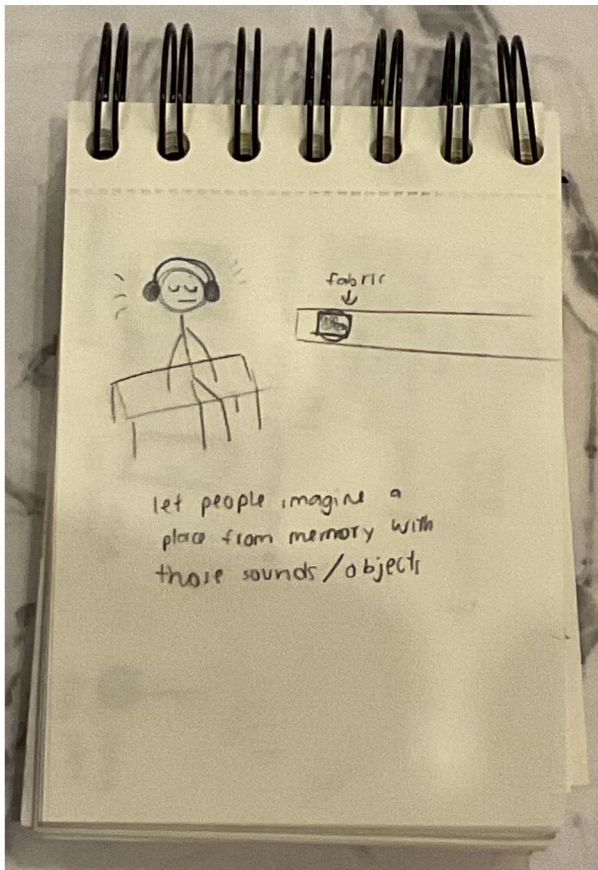 fabric
let people imagine a
place from memory with
those sounds/objects